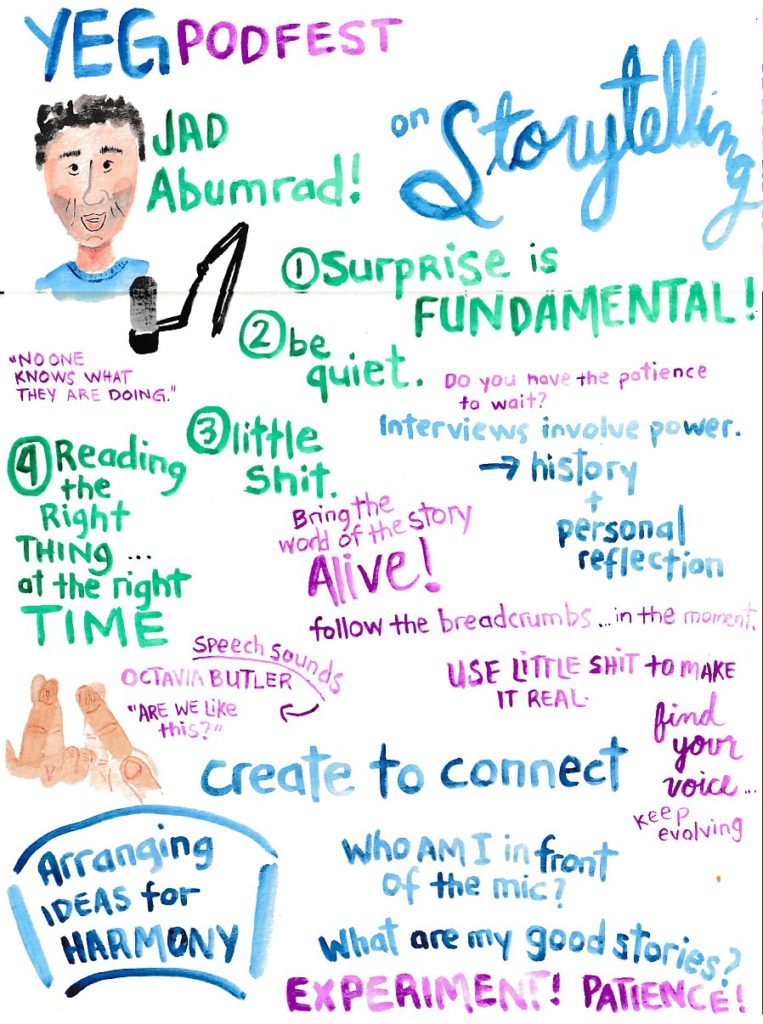 YEG PODFEST
JAD
Abumrad!
on Storytelling
① Surprise is
FUNDAMENTAL!
② be
quiet.
Do you have the patience
to wait?
"NO ONE
KNOWS WHAT
THEY ARE DOING."
③ little
shit.
Interviews involve power.
→ history
+
personal
reflection
④ Reading
the
Right
THING ...
at the right
TIME
Bring the
world of the story
Alive!
follow the breadcrumbs ... in the moment.
Speech Sounds
OCTAVIA BUTLER
"ARE WE LIKE
this?"
USE LITTLE SHIT TO MAKE
IT REAL.
find
your
voice ...
keep
evolving
create to connect
Arranging
IDEAS for
HARMONY
WHO AM I in front
of the mic?
What are my good stories?
EXPERIMENT! PATIENCE!